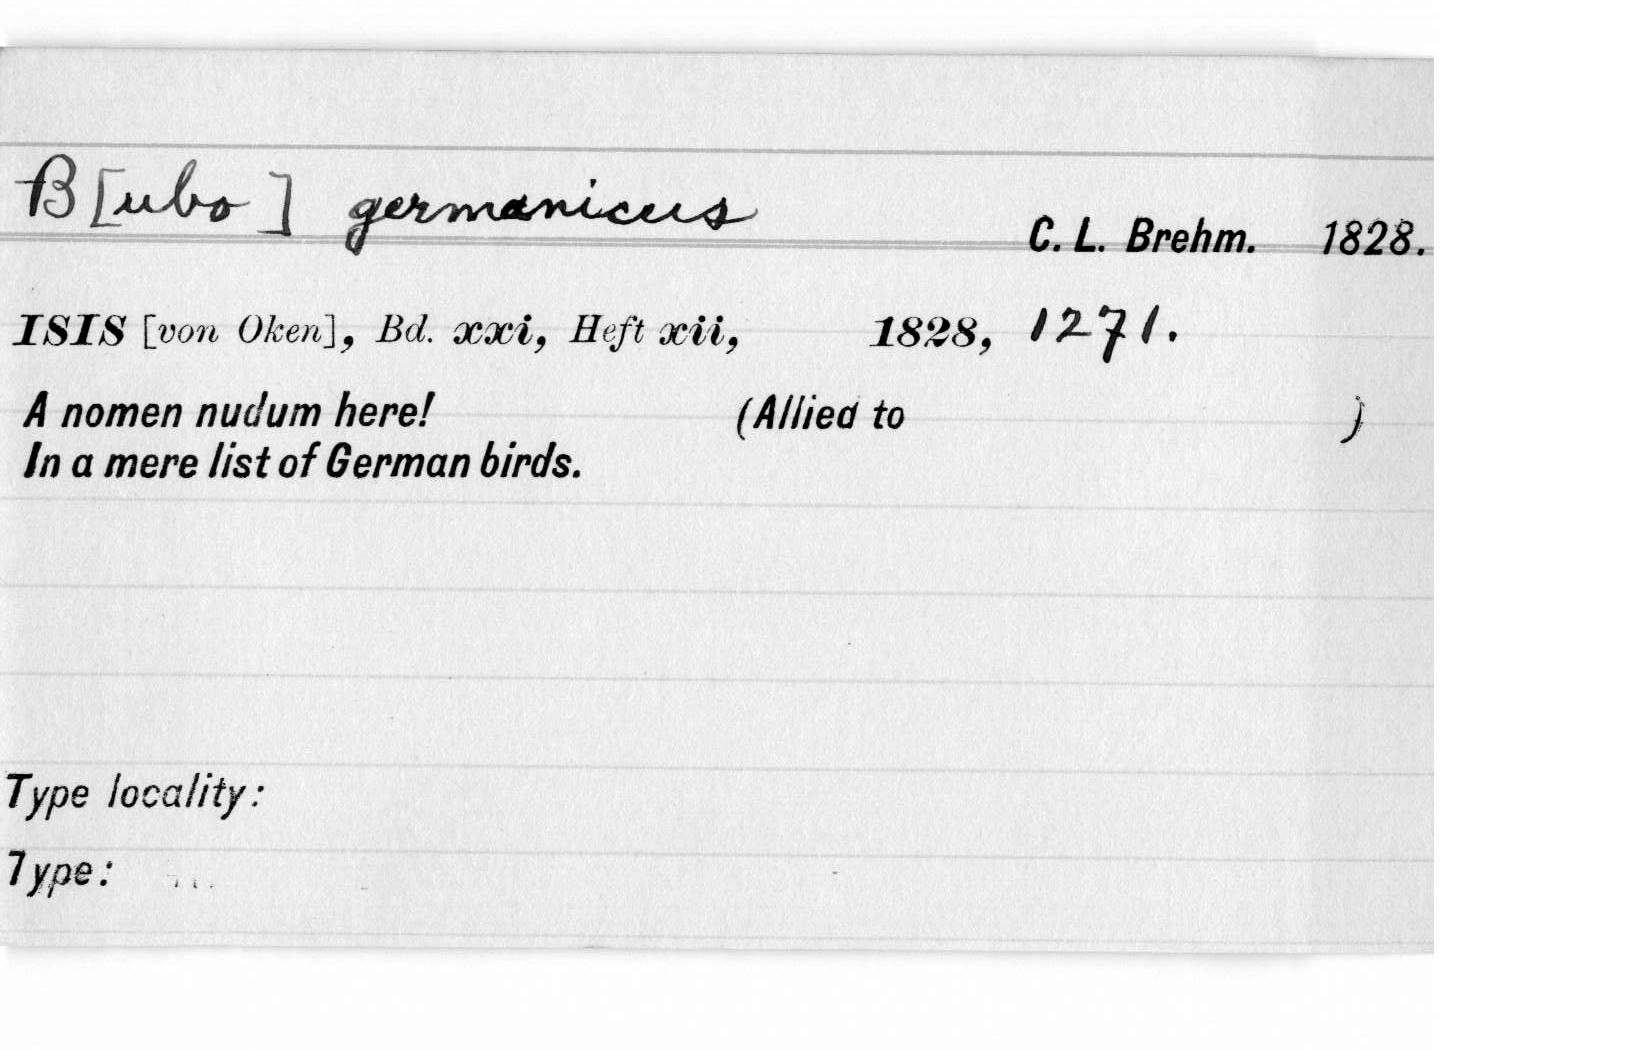 B[ubo] germanicus C. L. Brehm. 1828.
ISIS [von Oken], Bd. xxi, Heft xii, 1828, 1271.
A nomen nudum here! (Allied to )
In a mere list of German birds.
Type locality:
Type: